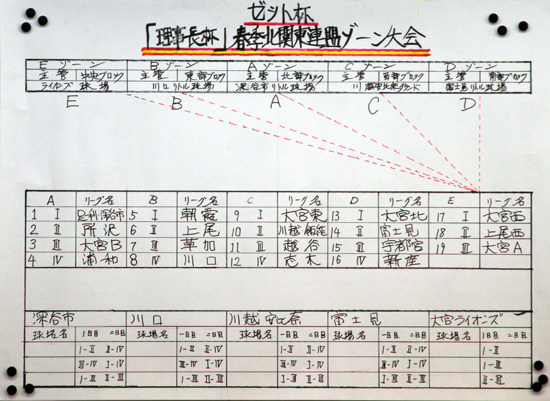 ゼット杯
「理事長杯」春季北関東連盟ゾーン大会
E ゾーン B ゾーン A ゾーン C ゾーン D ゾーン
主管 中央ブロック 主管 東部ブロック 主管 北部ブロック 主管 西部ブロック 主管 南部ブロック
ライオンズ 球場 川口リトル球場 深谷市リトル球場 富士見リトル球場
E B A C D
A リーグ名 B リーグ名 C リーグ名 D リーグ名 E リーグ名
1 I 足利・深谷市 5 I 朝霞 9 I 大宮東 13 I 大宮北 17 I 大宮西
2 II 所沢 6 II 上尾 10 II 川越 14 II 富士見 18 II 上尾西
3 III 大宮B 7 III 草加 11 III 越谷 15 III 宇都宮 19 III 大宮A
4 IV 浦和 8 IV 川口 12 IV 志木 16 IV 新座
深谷市 川口 川越安比奈 富士見 大宮ライオンズ
球場名 1日目 二日目 球場名 一日目 二日目 球場名 一日目 二日目 球場名 一日目 二日目 球場名 1日目 二日目
I-II II-IV I-II II-IV I-II II-IV I-II II-IV I-II
III-IV I-IV III-IV I-IV III-IV I-IV III-IV I-IV I-III
I-III I-III I-III I-III II-III